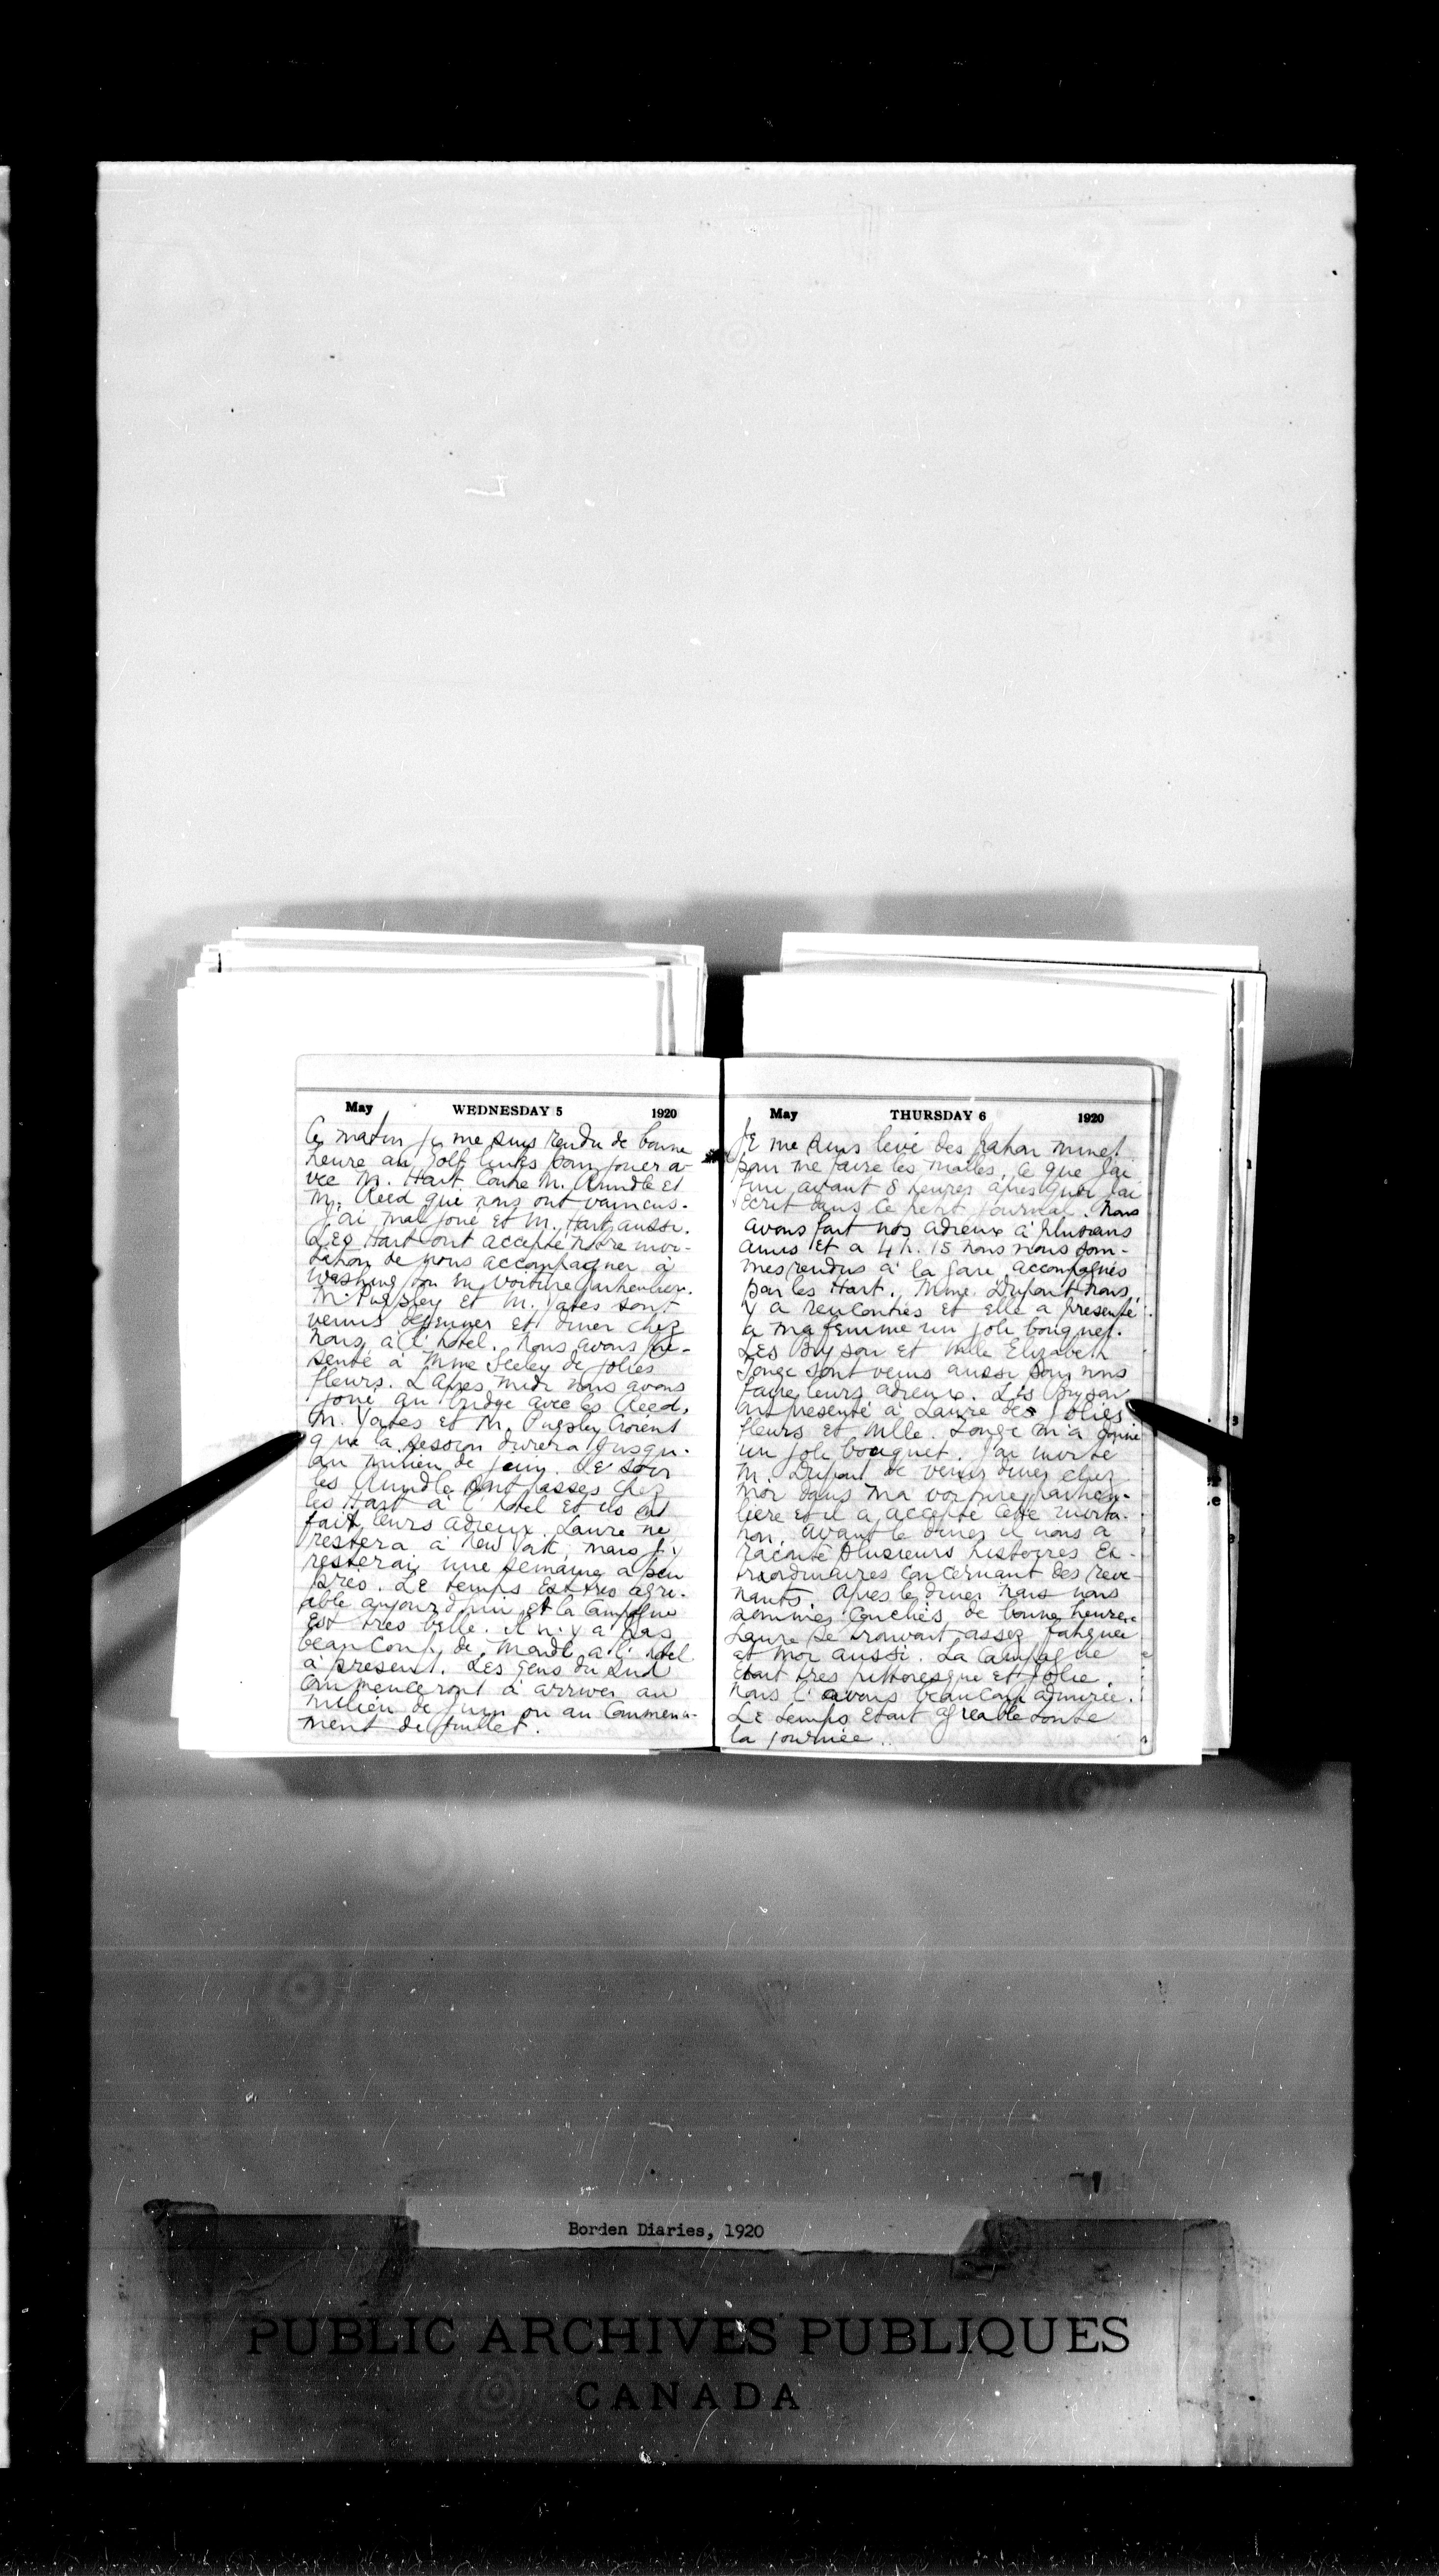 May WEDNESDAY 5 1920
Ce matin je me suis rendu de bonne
heure au golf links pour jouer a-
vec M. Hart contre M. Arundle et
M. Reed qui nous ont vaincus.
J'ai mal joué et M. Hart aussi.
Les Hart ont accepté notre invi-
tation de nous accompagner à
Washington en voiture particulière.
M. Pugsley et M. Yates sont
venus dejeuner et diner chez
nous à l'hotel. Nous avons pré-
senté à Mme Seeley de jolies
fleurs. L'apres midi nous avons
joué au bridge avec les Reed.
M. Yates et M. Pugsley croient
que la session durera jusqu'-
au milieu de juin. Le soir
les Arundle sont passes chez
les Hart à l'hotel et ils ont
fait leurs adieux. Laure ne
restera à New York, mais j'y
resterai une semaine a peu
près. Le temps est très agré-
able aujourd'hui et la campagne
est très belle. Il n'y a pas
beaucoup de monde a l'hotel
à présent. Les gens du Sud
commenceront à arriver au
milieu de juin ou au commence-
ment de juillet.
May THURSDAY 6 1920
Je me suis levé des patron minet
pour me faire les malles, ce que j'ai
fini avant 8 heures après quoi j'ai
écrit dans ce petit journal. Nous
avons fait nos adieux à plusieurs
amis et a 4 h. 15 nous nous som-
mes rendus à la gare, accompagnés
par les Hart. Mme. Dupont nous
y a rencontrés et elle a présenté
a ma femme un joli bouquet.
Les Bryson et Mlle Elizabeth
Longe sont venus aussi pour nous
faire leurs adieux. Les Bryson
ont présenté à Laure des jolies
fleurs et Mlle. Longe m'a donné
un joli bouquet. J'ai invité
M. Dupont de venir diner chez
moi dans ma voiture particu-
lière et il a accepté cette invita-
tion. Avant le diner il nous a
raconté plusieurs histoires ex-
traordinaires concernant des reve-
nants. Apres le diner nous nous
sommes couchés de bonne heure.
Laure se trouvait assez fatiguée
et moi aussi. La campagne
était très pittoresque et jolie.
Nous l'avons beaucoup admirée.
Le temps était agreable toute
la journée.
Borden Diaries, 1920
PUBLIC ARCHIVES PUBLIQUES
CANADA